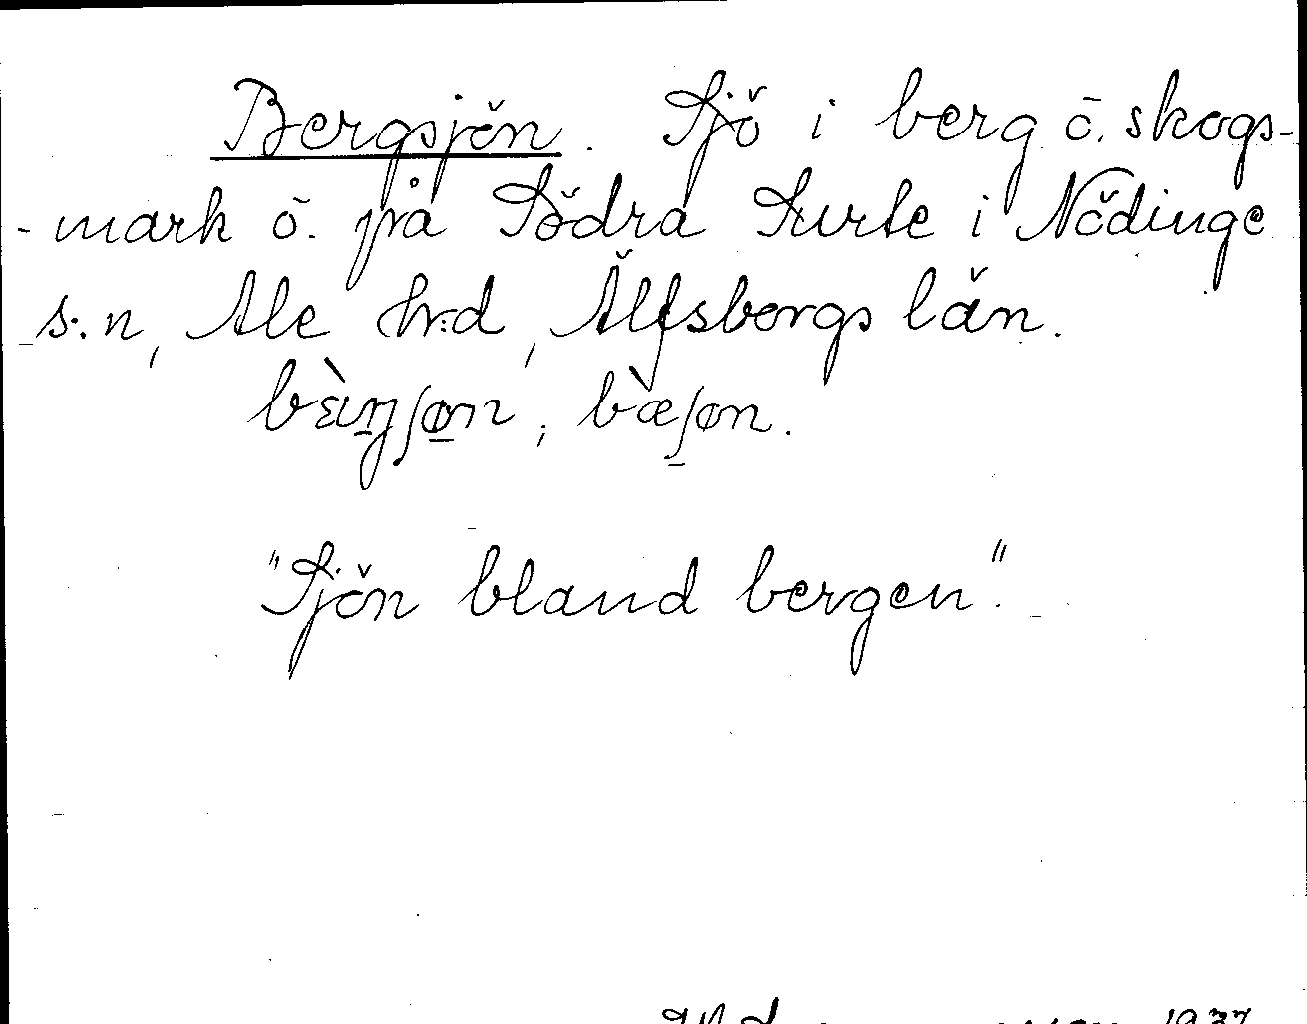 Bergsjön. Sjö i berg ō. skogs-
-mark ō. på Södra Surte i Nödinge
s:n, Ale hr:d, Älfsborgs län.
"Sjön bland bergen".
1937